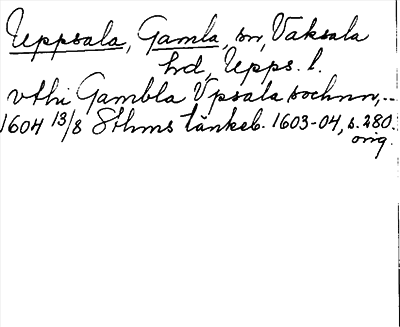 Uppsala, Gamla, sn, Vaksala
hd, Upps. l.
vthi Gambla Vpsala sochnn,..
1604 13/8 Sthms tänkeb. 1603-04, s. 280.
orig.